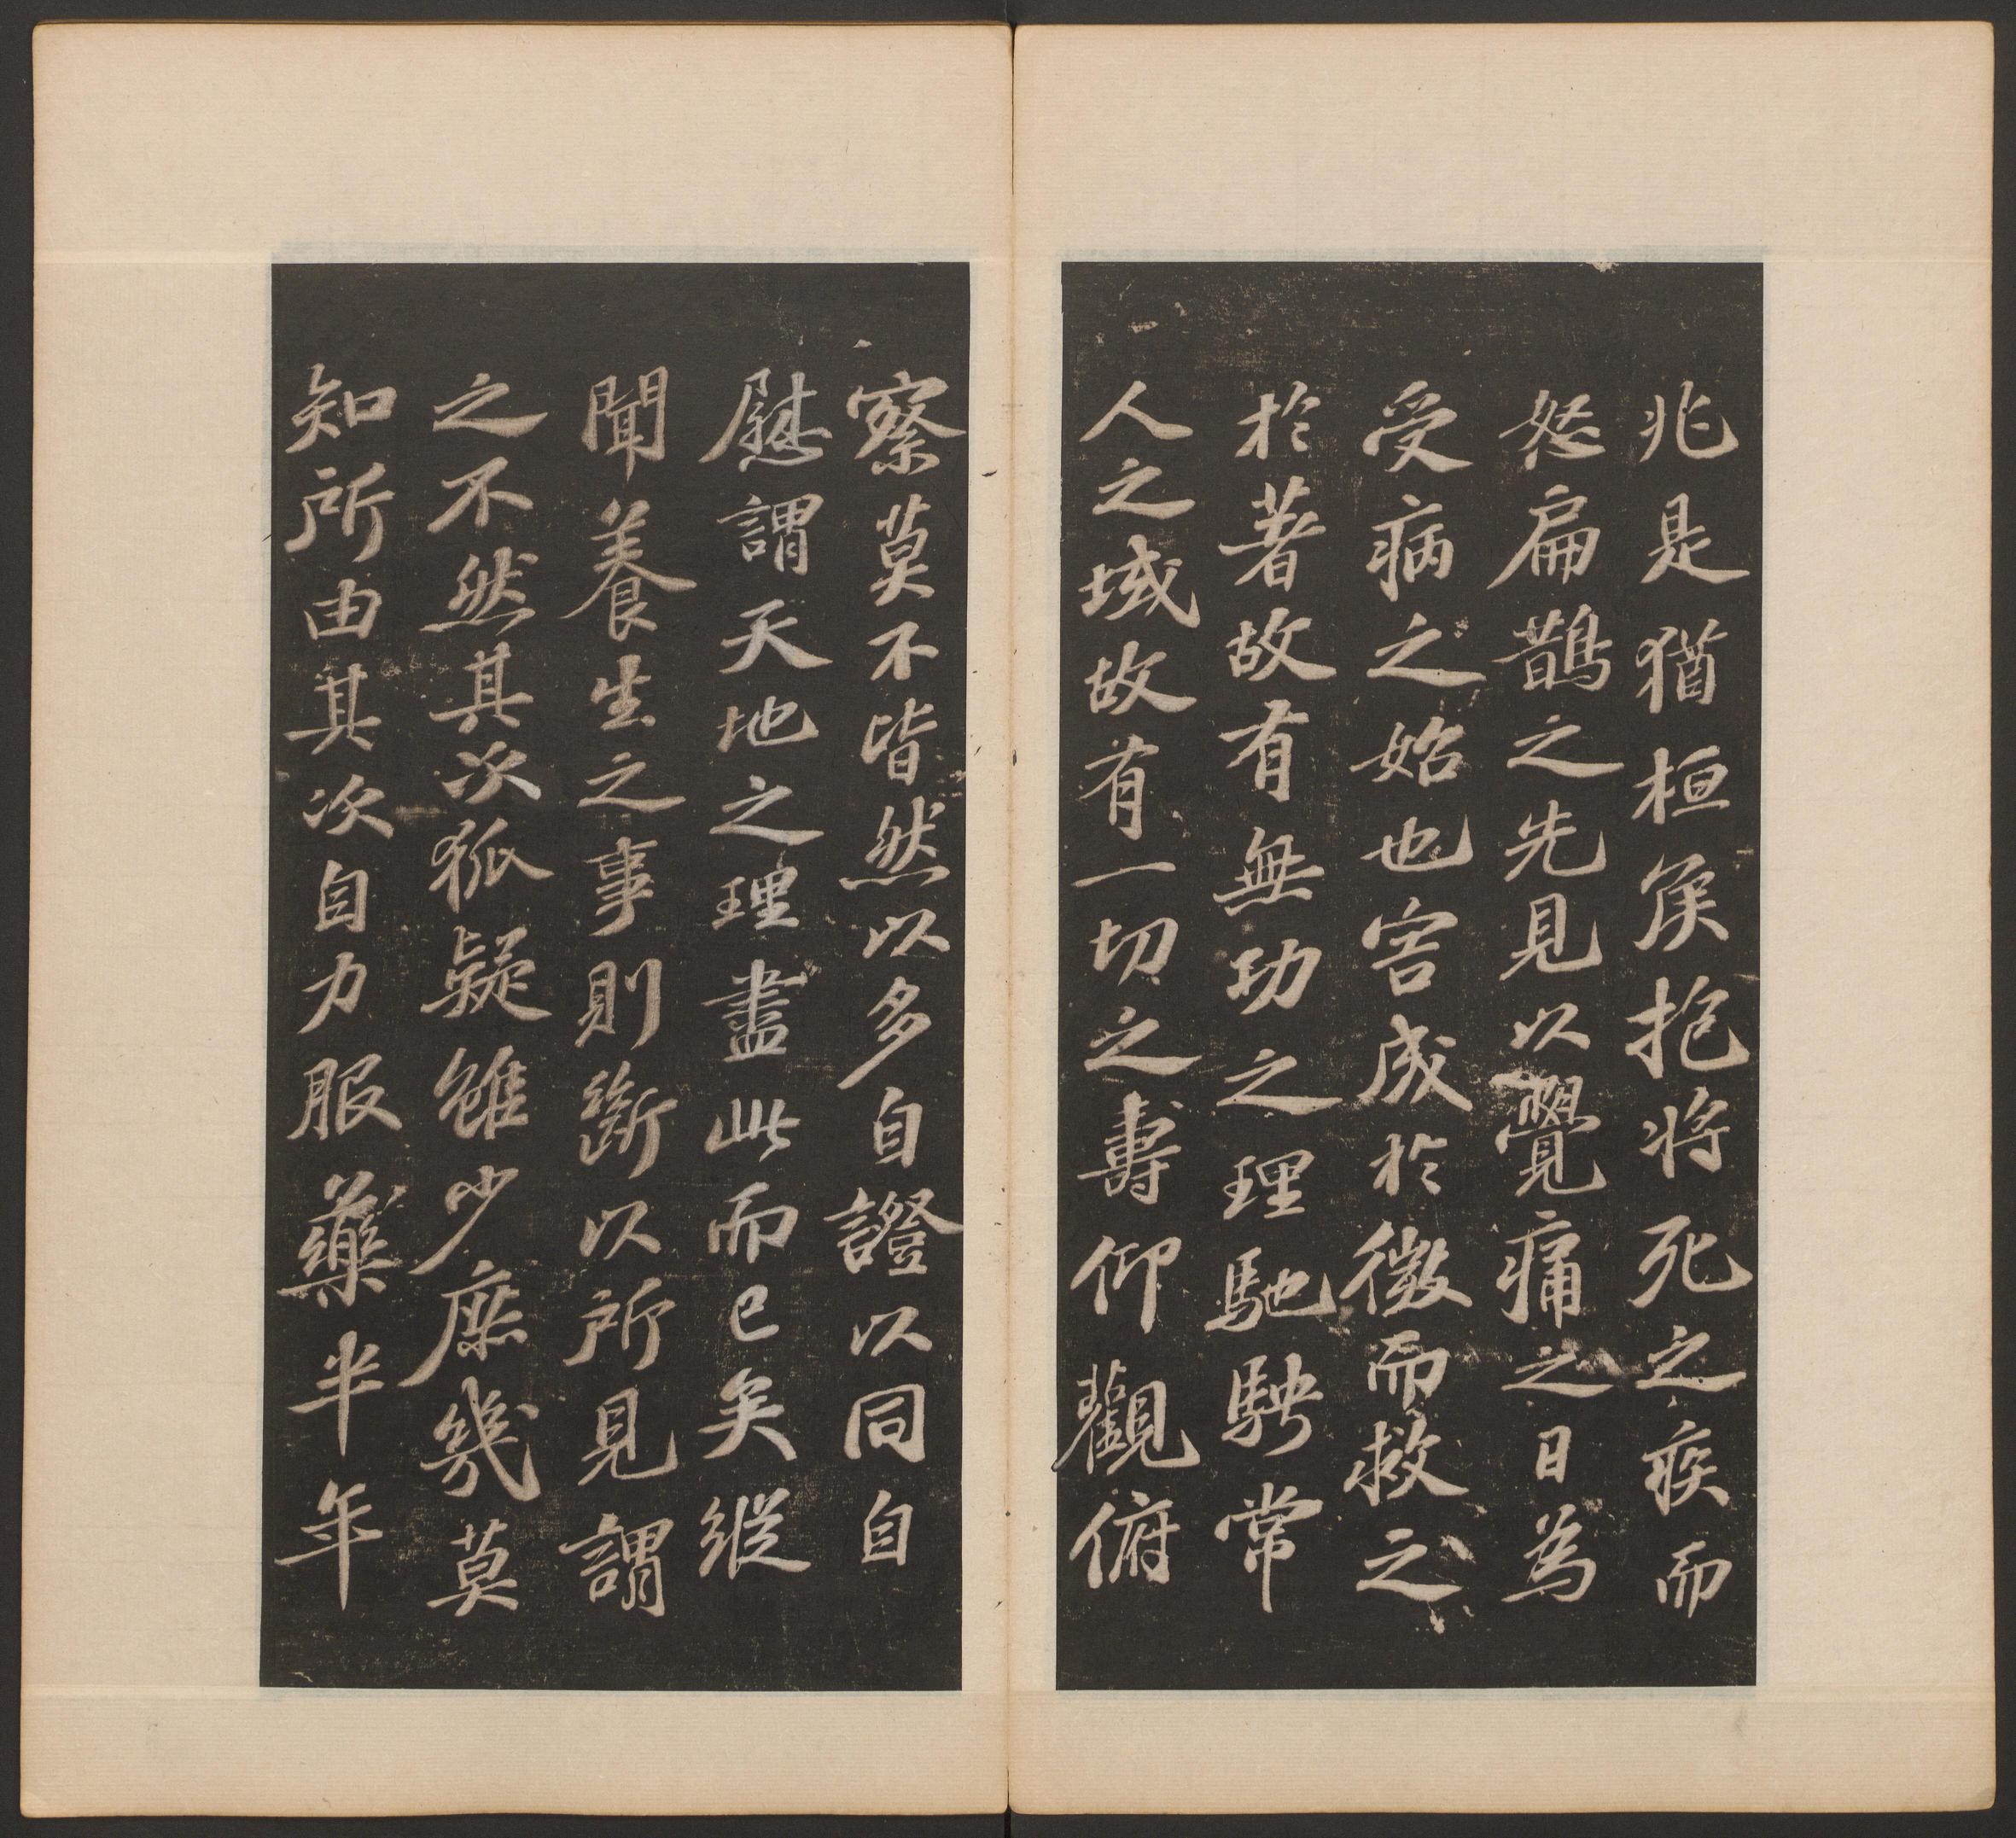 兆是猶桓侯抱將死之疾而
怒扁鵲之先見以覺痛之日為
受病之始也害成於微而救之
於著故有無功之理馳騁常
人之域故有一切之壽仰觀俯
察莫不皆然以多自證以同自
慰謂天地之理盡此而已矣縱
聞養生之事則斷以所見謂
之不然其次狐疑雖少庶幾莫
知所由其次自力服藥半年